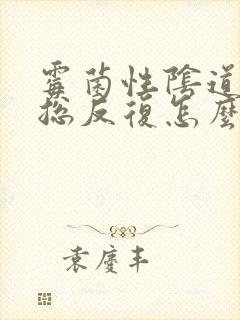 霉菌性陰道
總反復怎麼
袁慶丰